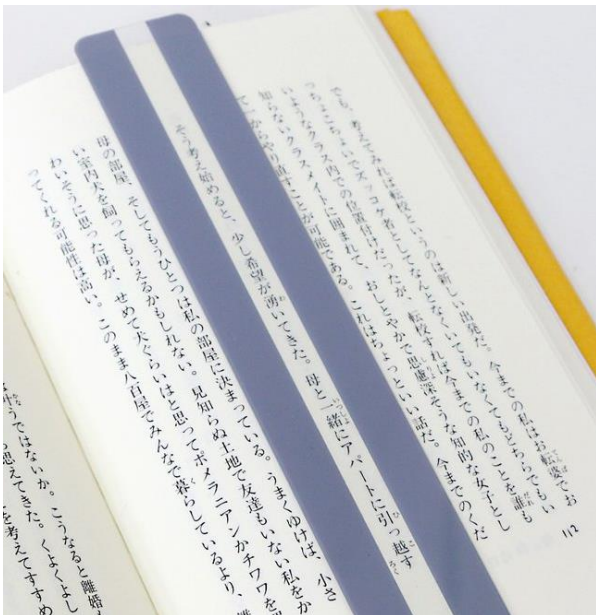 でも、考えてみれば転校というのは新しい出発だ。今までの私はお転婆でお
っちょこちょいでズッコケ者としてなんとなくいてもいなくてもどちらでもい
いようなクラス内での位置付けだったが、転校すれば今までの私のことを誰も
知らないクラスメイトに囲まれて、おしとやかで思慮深そうな知的な女子とし
て一からやり直すことが可能である。これはちょっといい話だ。今までのくだ
そう考え始めると、少し希望が湧いてきた。母と一緒にアパートに引っ越す
母の部屋、そしてもうひとつは私の部屋に決まっている。うまくゆけば、小さ
い室内犬を飼ってもらえるかもしれない。見知らぬ土地で友達もいない私をか
わいそうに思った母が、せめて犬ぐらいはと思ってポメラニアンかチワワを
ってくれる可能性は高い。このまま八百屋でみんなで暮らしているより、
112
うではないか。こうなると離婚
思えてきた。くよくよし
を考えてすすめ